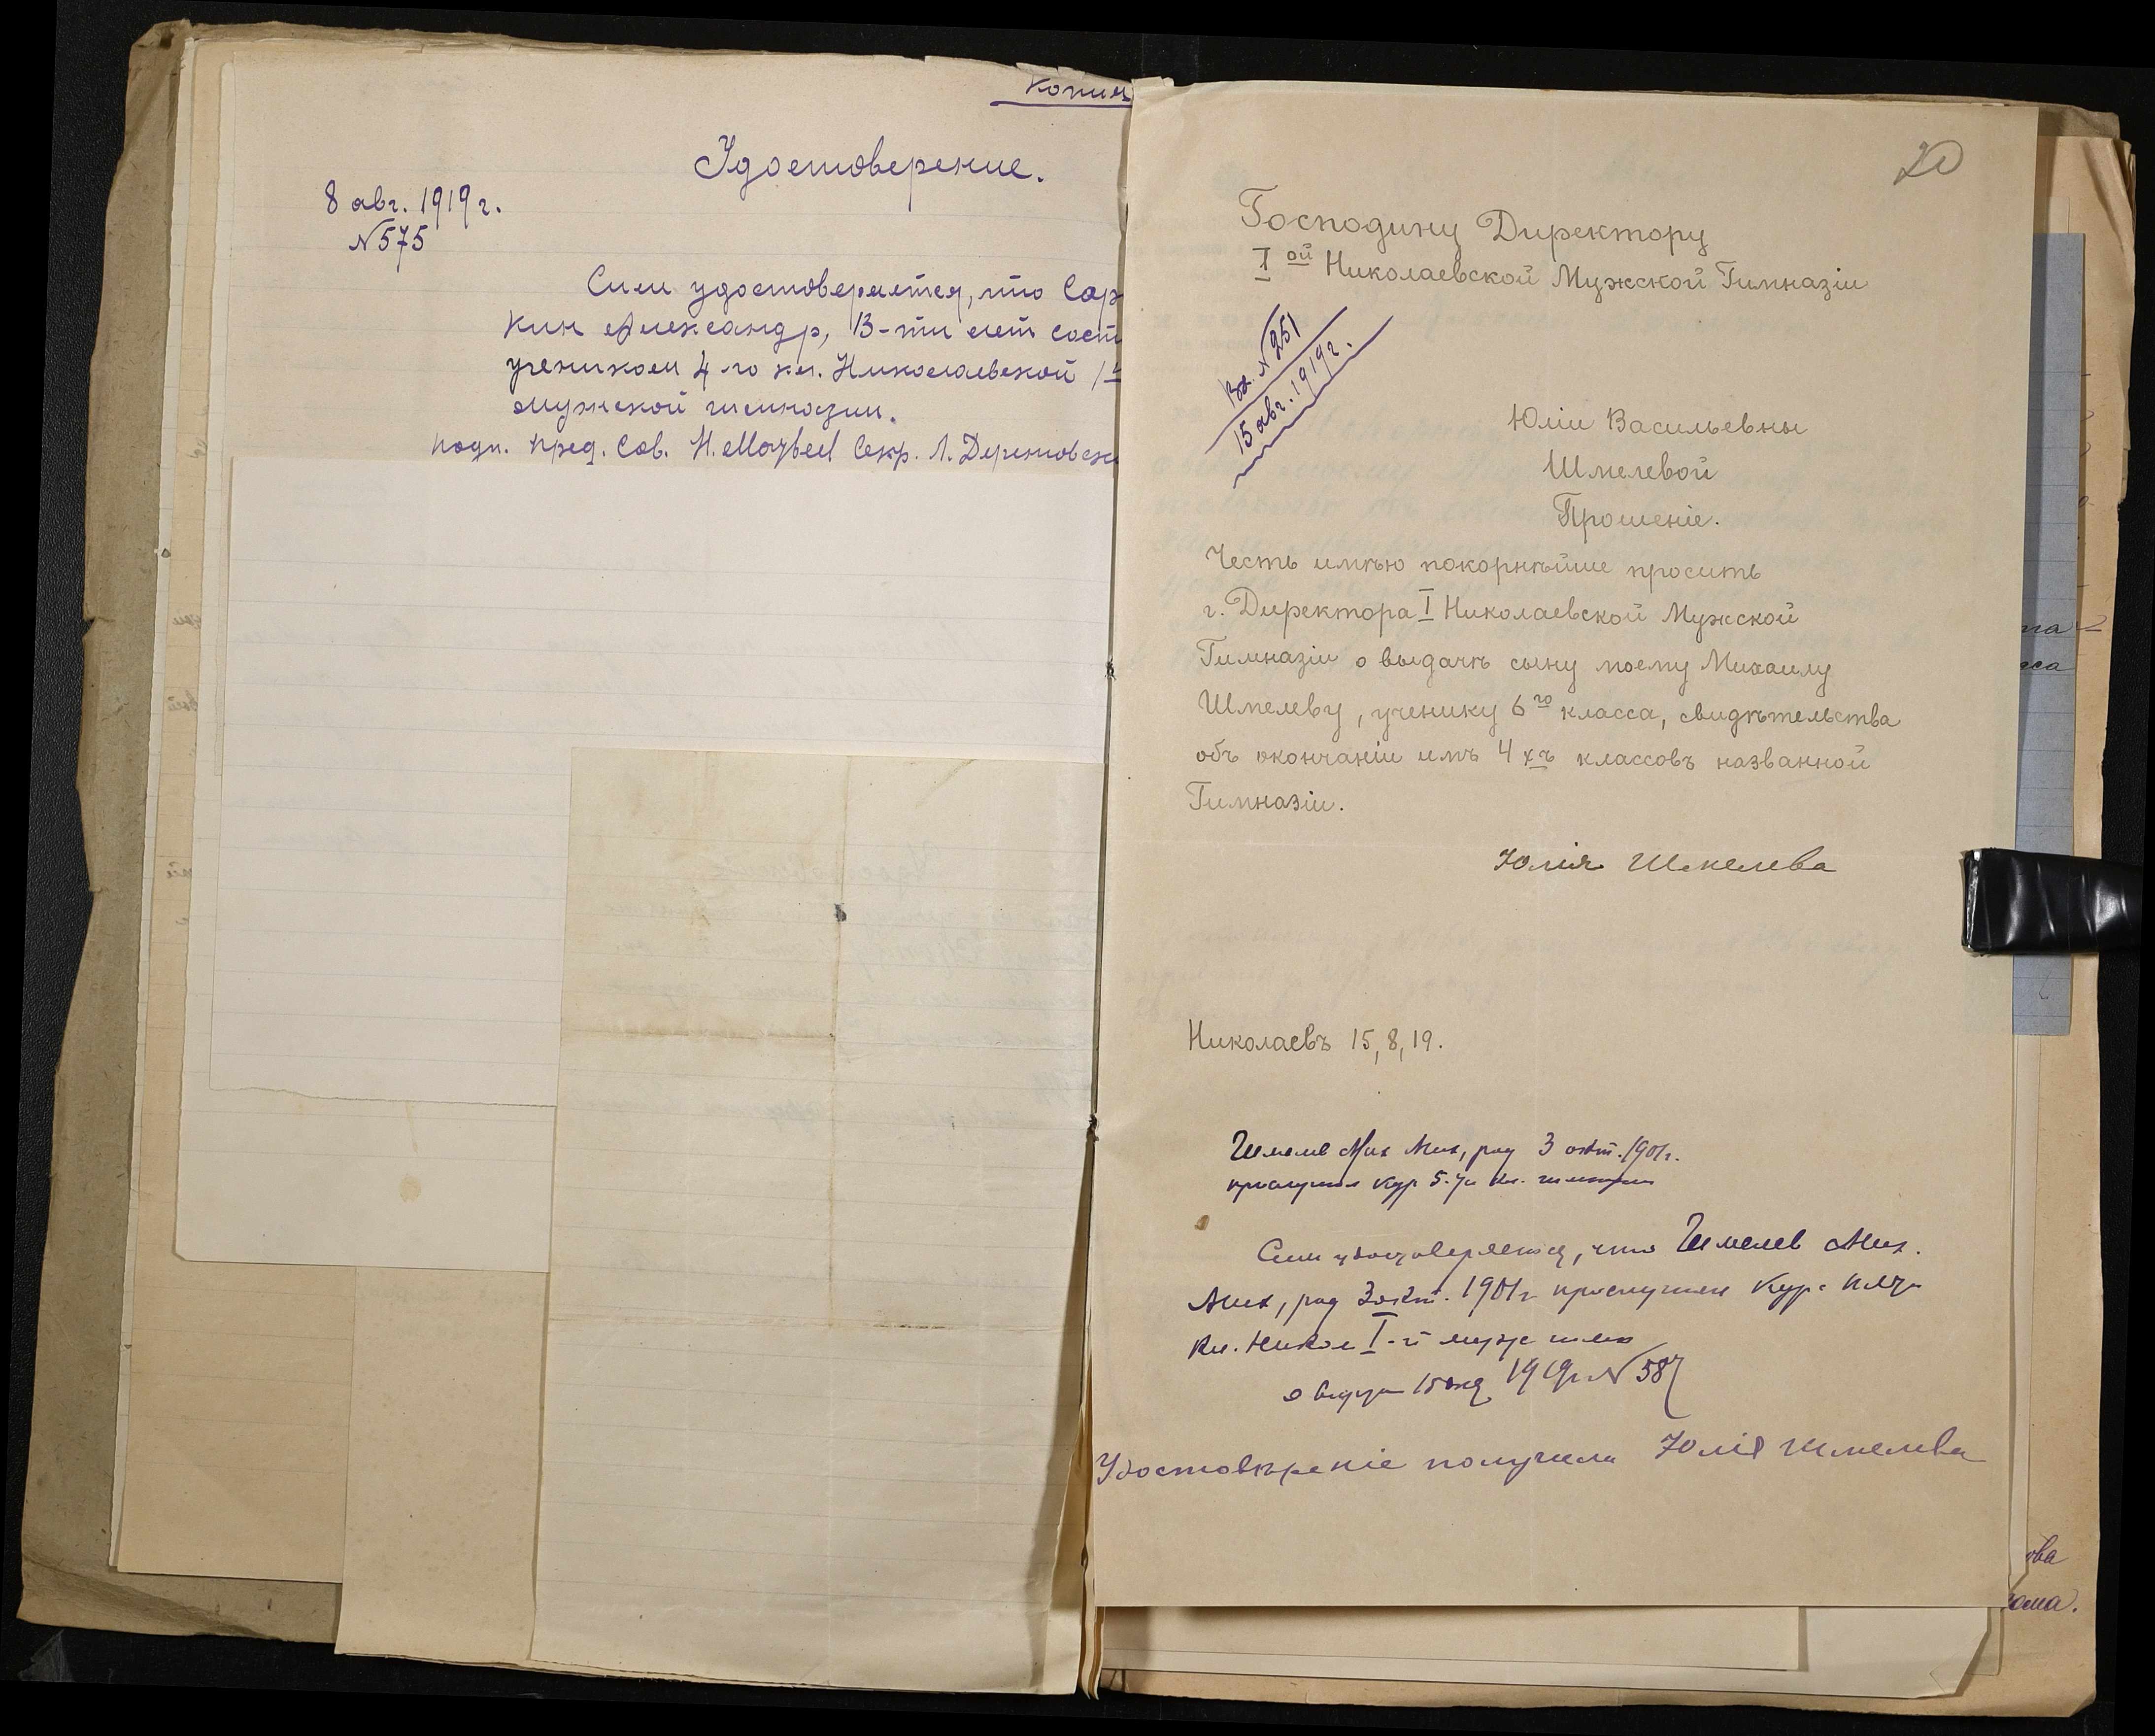 Копия
Удостоверение.
8 авг. 1919 г.
№ 575
Сим удостоверяется, что Сар
кин Александр, 13-ти лет сост
учеником 4-го кл. Николаевской 1-й
мужской гимназии.
подп. Пред. Сов. Н. Секр. Л.
20
Господину Директору
I ой Николаевской Мужской Гимназіи
Вх. № 251
15 авг. 1919 г.
Юліи Васильевны
Шмелевой
Прошеніе.
Честь имѣю покорнѣйше просить
г. Директора I Николаевской Мужской
Гимназіи о выдачѣ сыну моему Михаилу
Шмелеву, ученику 6 го класса, свидѣтельства
объ окончаніи имъ 4 хъ классовъ названной
Гимназіи.
Юлія Шмелева
Николаевъ 15, 8, 19.
Шмелев Мих Мих, род 3 окт. 1901 г.
прослушал кур 5-ти кл. гимназии
Сим удостоверяется, что Шмелев Мих.
Мих, род 3 окт. 1901 г прослушал курс пяти
кл. Никол I-й муж гимн
15 1919 г № 587
Удостовѣреніе получила Юлія Шмелева
та
са
ова
ома.